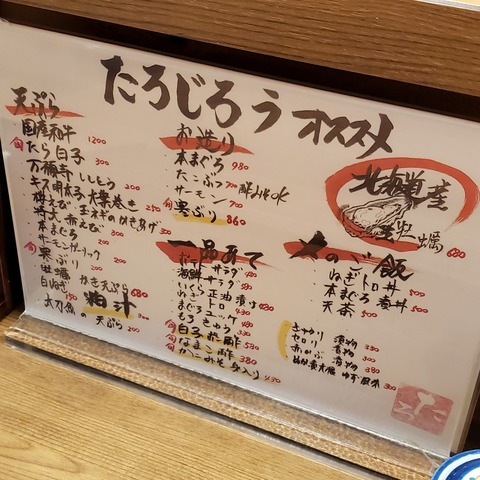 たろじろうオススメ
天ぷら
国産和牛 1200
旬 たら白子 300
万願寺ししとう 200
キス明太子大葉巻き 250
桜えび 玉ネギのかきあげ 300
本まぐろ
サーモンガーリック
旬 寒ぶり 200
牡蠣 かき天ぷら 680
白ねぎ 150
粕汁
太刀魚の天ぷら 200
お造り
本まぐろ 980
たこぶつ 700
サーモン 700
旬 寒ぶり 860
北海道産
生牡蠣 680
一品あて
海鮮サラダ
いくら正油漬け 480
ねぎトロ 430
まぐろユッケ 480
もろきゅう 330
旬 白子ポン酢 580
旬 なまこ酢 380
旬 かにみそ身入り 430
〆のご飯
ねぎトロ丼 500
本まぐろ漬丼 500
天茶 500
きゅうり 漬物 330
セロリ 漬物 300
赤かぶ 漬物 380
ゆず風味 300